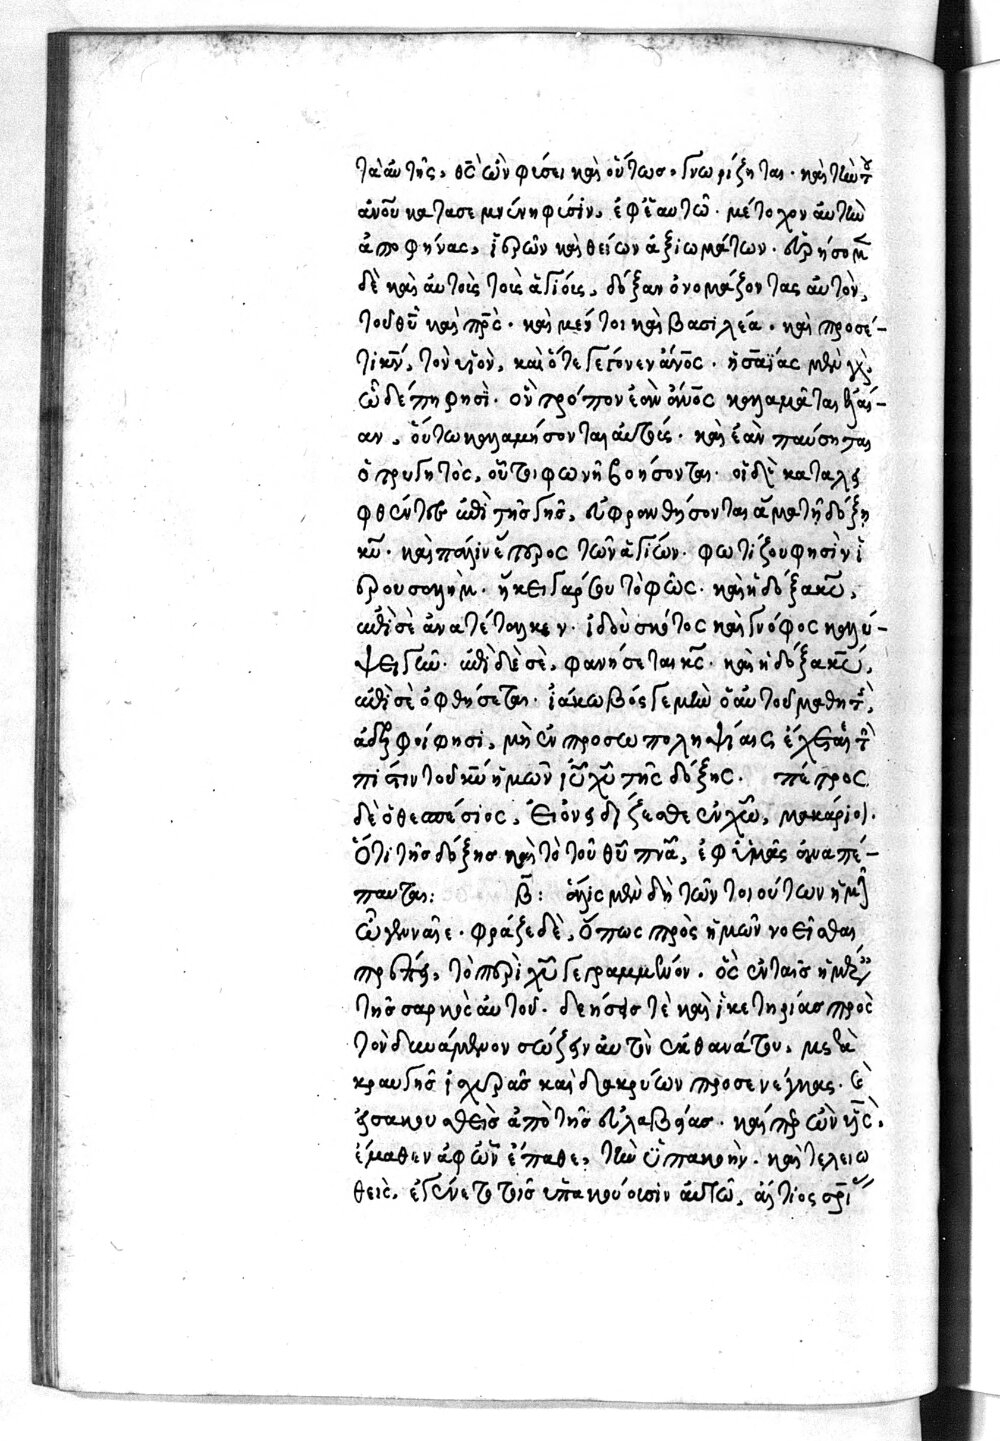 τὰ αὐτῆς, θς ὢν φύσει καὶ οὕτως γνωρίζηται. καὶ τὴν τοῦ
ἀνου κατασεμνύνῃ φύσιν, ἐφ' ἑαυτῶ. μέτοχον αὐτὴν
ἀποφήνας, ἱερῶν καὶ θείων ἀξιωμάτων. εὑρήσομεν
δὲ καὶ αὐτοὺς τοὺς ἁγίους, δόξαν ὀνομάζοντας αὐτὸν,
τοῦ θυ καὶ πρς. καὶ μέντοι καὶ βασιλέα. καὶ προσέ-
τι κν, τὸν υἱὸν, καὶ ὅτε γέγονεν ἄνος. ἡσαΐας μὲν γὰρ
ὧδέ πη φησὶ. ὃν τρόπον ἐάν ανος καλαμᾶται ἐλαί-
αν, οὕτω καλαμήσονται αὐτούς. καὶ ἐὰν παύσηται
ὁ τρυγητὸς, οὗτοι φωνῇ βοήσονται. οἱ δὲ καταλει
φθέντες ἐπὶ τῆς γῆς, εὐφρανθήσονται ἅμα τῇ δόξη
κυ. καὶ πάλιν ἕτερος τῶν ἁγίων. φωτίζου φησὶν ἱ
ερουσαλήμ. ἥκει γάρ σου τὸ φῶς. καὶ ἡ δόξα κυ,
ἐπὶ σὲ ἀνατέταλκεν. ἰδοὺ σκότος καὶ γνόφος καλύ-
ψει γῆν. ἐπὶ δὲ σὲ, φανήσεται κς. καὶ ἡ δόξα κυ,
ἐπὶ σὲ ὀφθήσεται. ἰάκωβός γε μὴν ὁ αὐτοῦ μαθητὴς,
ἀδελφοί φησι, μὴ ἐν προσωποληψίαις ἔχετε τὴν
πίστιν τοῦ κυ ἡμῶν ιυ χυ τῆς δόξης. πέτρος
δὲ ὁ θεσπέσιος, εἰ ὀνειδίζεσθε ἐν χω, μακάριοι.
ὅτι τῆς δόξης καὶ τὸ τοῦ θυ πνα, ἐφ' ὑμᾶς ἀναπέ-
παυται: β: ἅλις μὲν δὴ τῶν τοιούτων ἡμῖν
ὦ γενναῖε. φράζε δὲ, ὅπως πρὸς ἡμῶν νοεῖσθαι
πρέπει, τὸ περὶ χυ γεγραμμένον. ὃς ἐν ταῖς ἡμέραις
τῆς σαρκὸς αὐτοῦ. δεήσεις τὲ καὶ ἱκετηρίας πρὸς
τὸν δυνάμενον σώζειν αὐτὸν ἐκ θανάτου, μετὰ
κραυγῆς ἰσχυρᾶς καὶ δακρύων προσενέγκας. καὶ
εἰσακουσθεὶς ἀπὸ τῆς εὐλαβείας. καίπερ ὢν υἱὸς.
ἔμαθεν ἀφ' ὧν ἔπαθε, τὴν ὑπακοὴν. καὶ τελειω
θεὶς, ἐγένετο τοῖς ὑπακούουσιν αὐτῶ, αἴτιος σρι